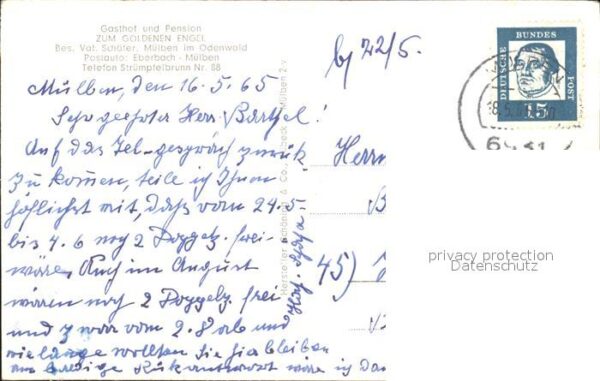 Gasthof und Pension
ZUM GOLDENEN ENGEL
Bes. Val. Schäfer, Mülben im Odenwald
Postauto: Eberbach - Mülben
Telefon Strümpfelbrunn Nr. 88
Mülben, den 16.5.65
Sehr geehrter Herr Barthel!
Auf das Tel-gespräch zurück
zu kommen, teile ich Ihnen
höflichst mit, daß vom 24.5
bis 4.6 noch 2 Doppelz. frei
wären. Auch im August
wären noch 2 Doppelz. frei
und zwar vom 2.8 ab und
wie lange wollten Sie hierbleiben
um baldige Rückantwort wäre ich
22/5.
Herrn
45)
Höfl. Schäfer
Hersteller: Schöning & Co., Lübeck
Mülben 2 v
DEUTSCHE BUNDES POST
15
6931
privacy protection
Datenschutz